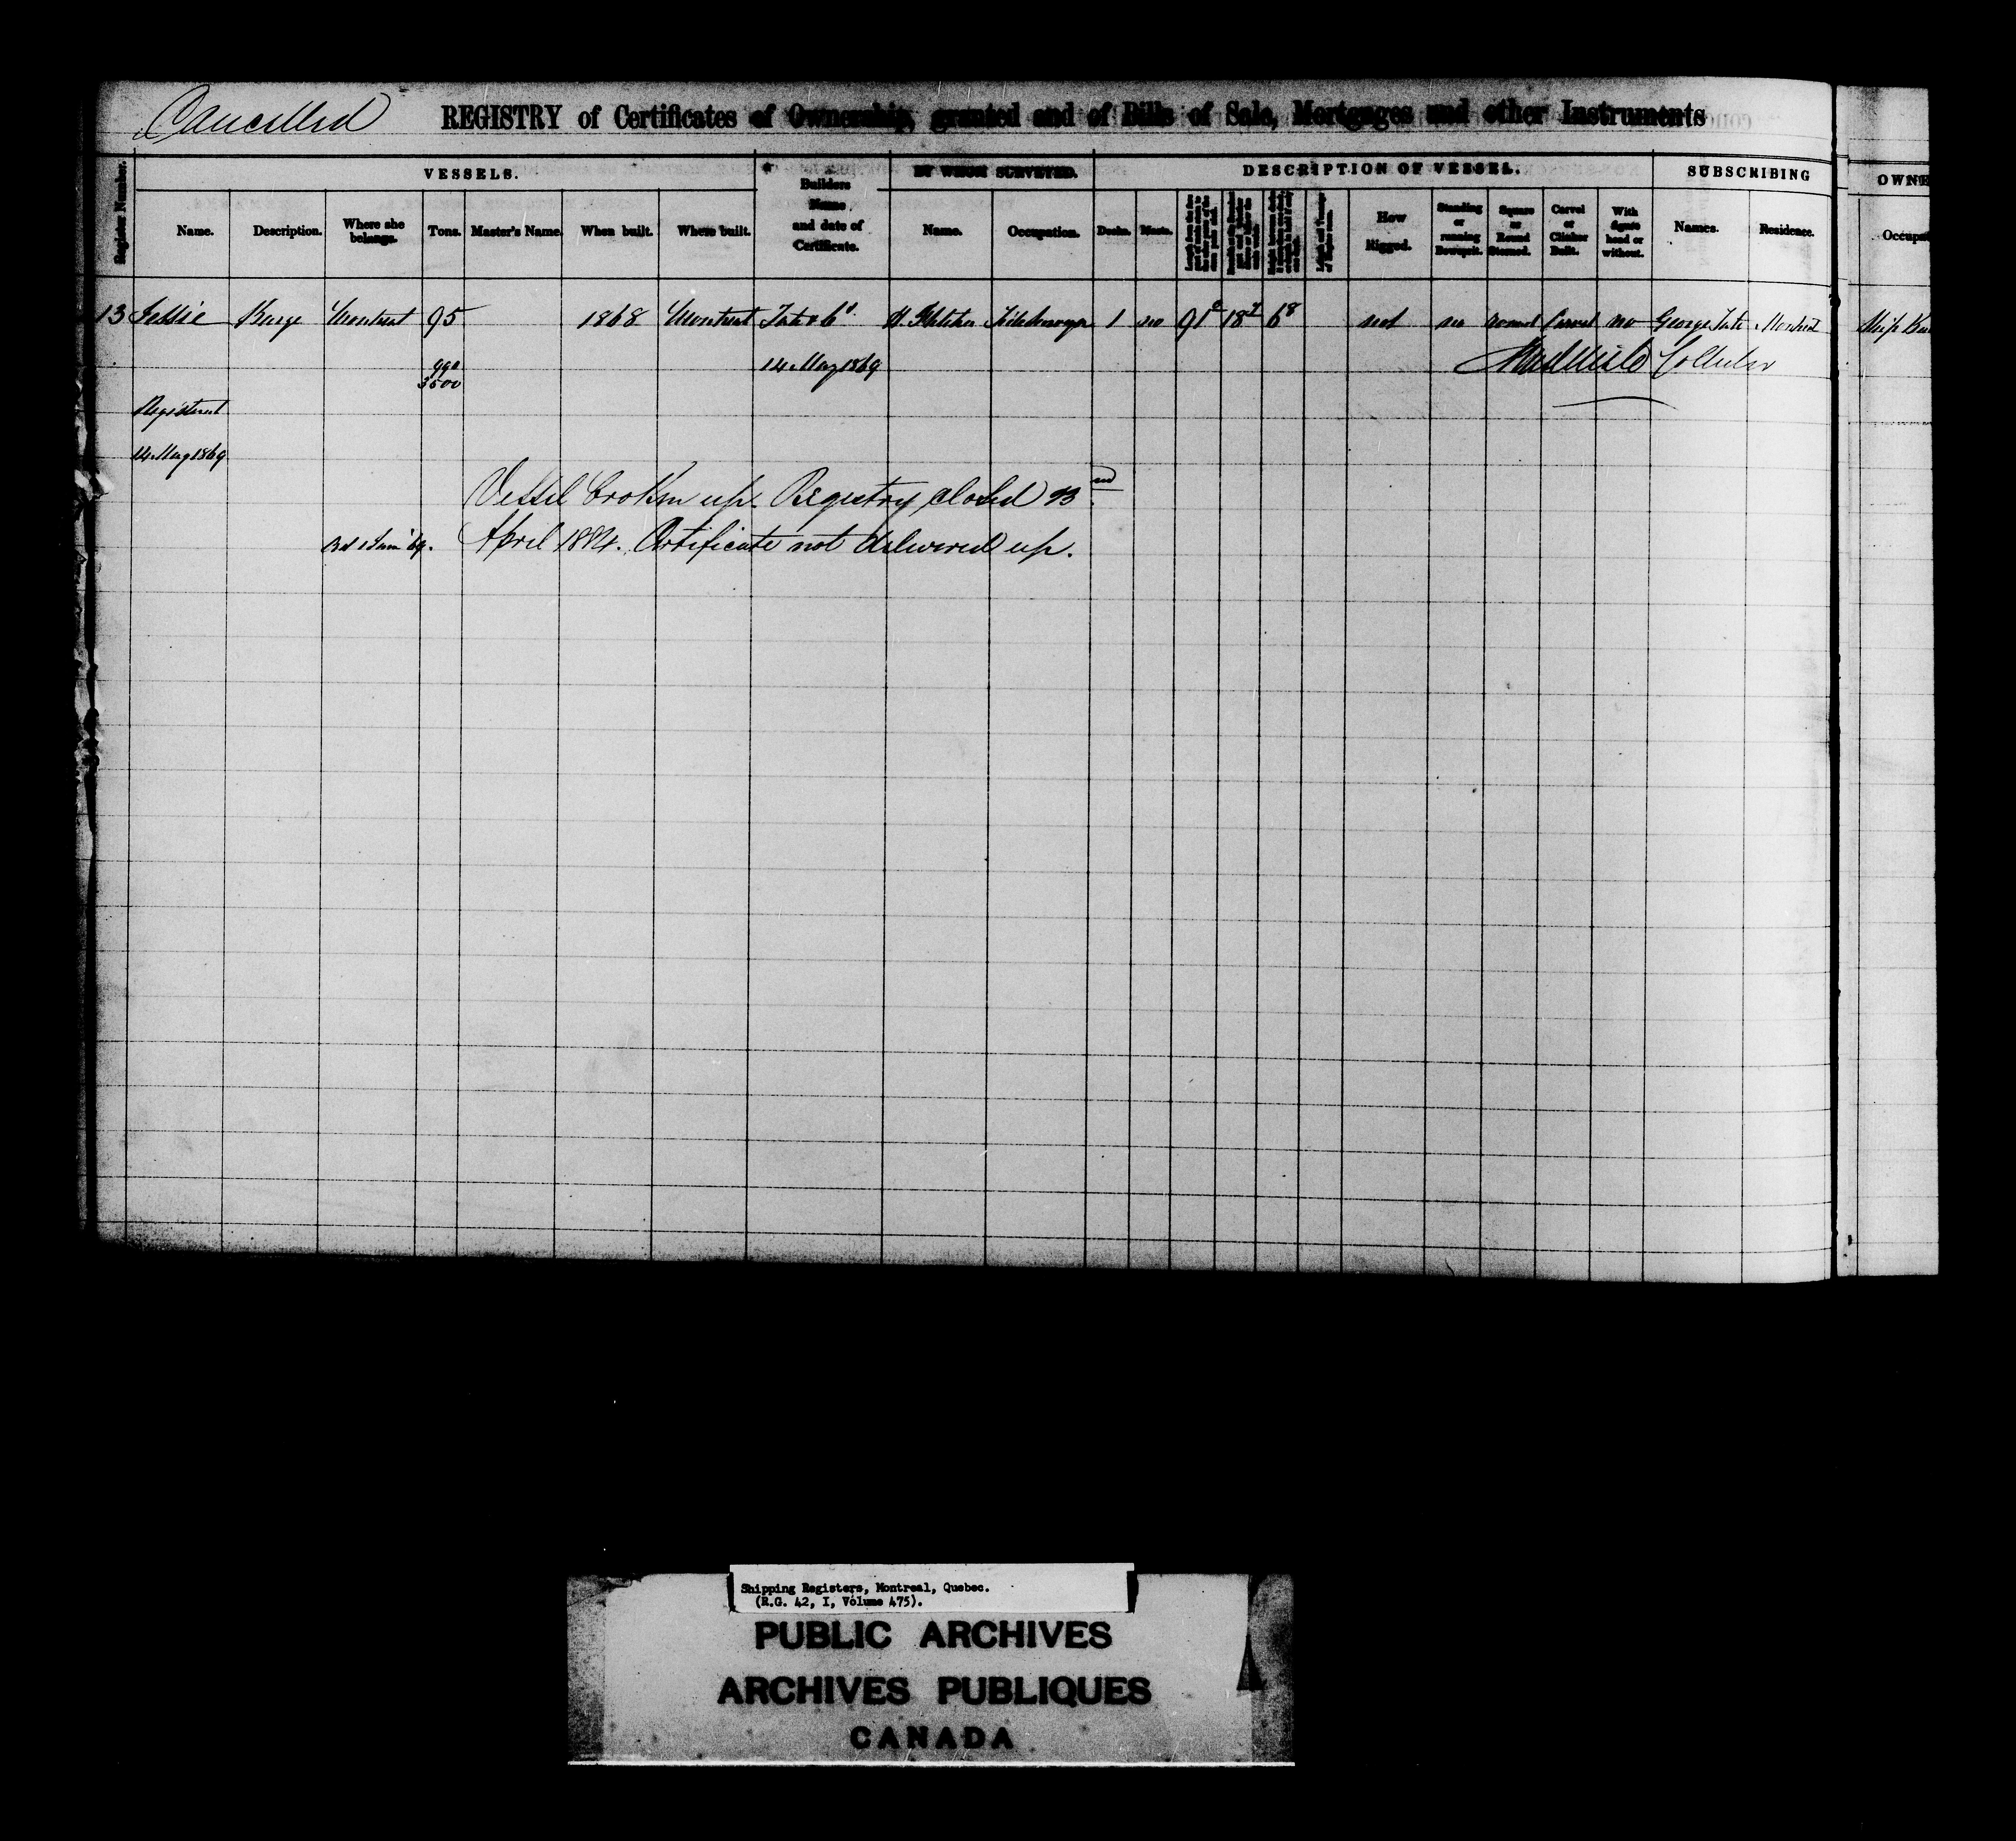 Cancelled REGISTRY of Certificates of Ownership, granted and of Bills of Sale, Mortgages and other Instruments
Register Number. VESSELS. Builders Name and date of Certificate. BY WHOM SURVEYED. DESCRIPTION OF VESSEL. SUBSCRIBING OWNE
Name. Description. Where she belongs. Tons. Master's Name. When built. Where built. Name. Occupation. Decks. Masts. How Rigged. Standing or running Bowsprit. Square or Round Sterned. Carvel or Clinker Built. With figure head or without. Names. Residence. Occupat
13 Jessie Barge Montreal 95 1868 Montreal Tate & Co. 1 no 91 0 18 2 6 8 not no round Carvel no George Tate Montreal Ship
14 May 1869 Collector
Registered
14 May 1869
Vessel broken up. Registry closed
April 1884. Certificate not delivered up.
Shipping Registers, Montreal, Quebec.
(R.G. 42, I, Volume 475).
PUBLIC ARCHIVES
ARCHIVES PUBLIQUES
CANADA